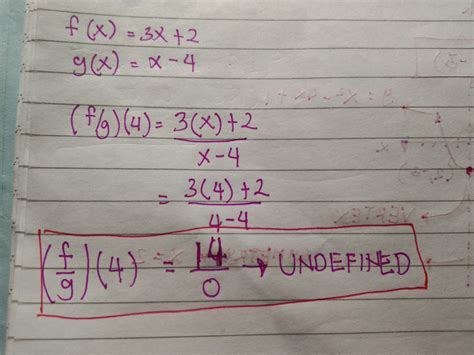 f(x) = 3x+2
g(x) = x-4
(f/g)(4) = 3(x)+2
x-4
= 3(4)+2
4-4
(f/g)(4) = 14/0 → UNDEFINED
VERTEX